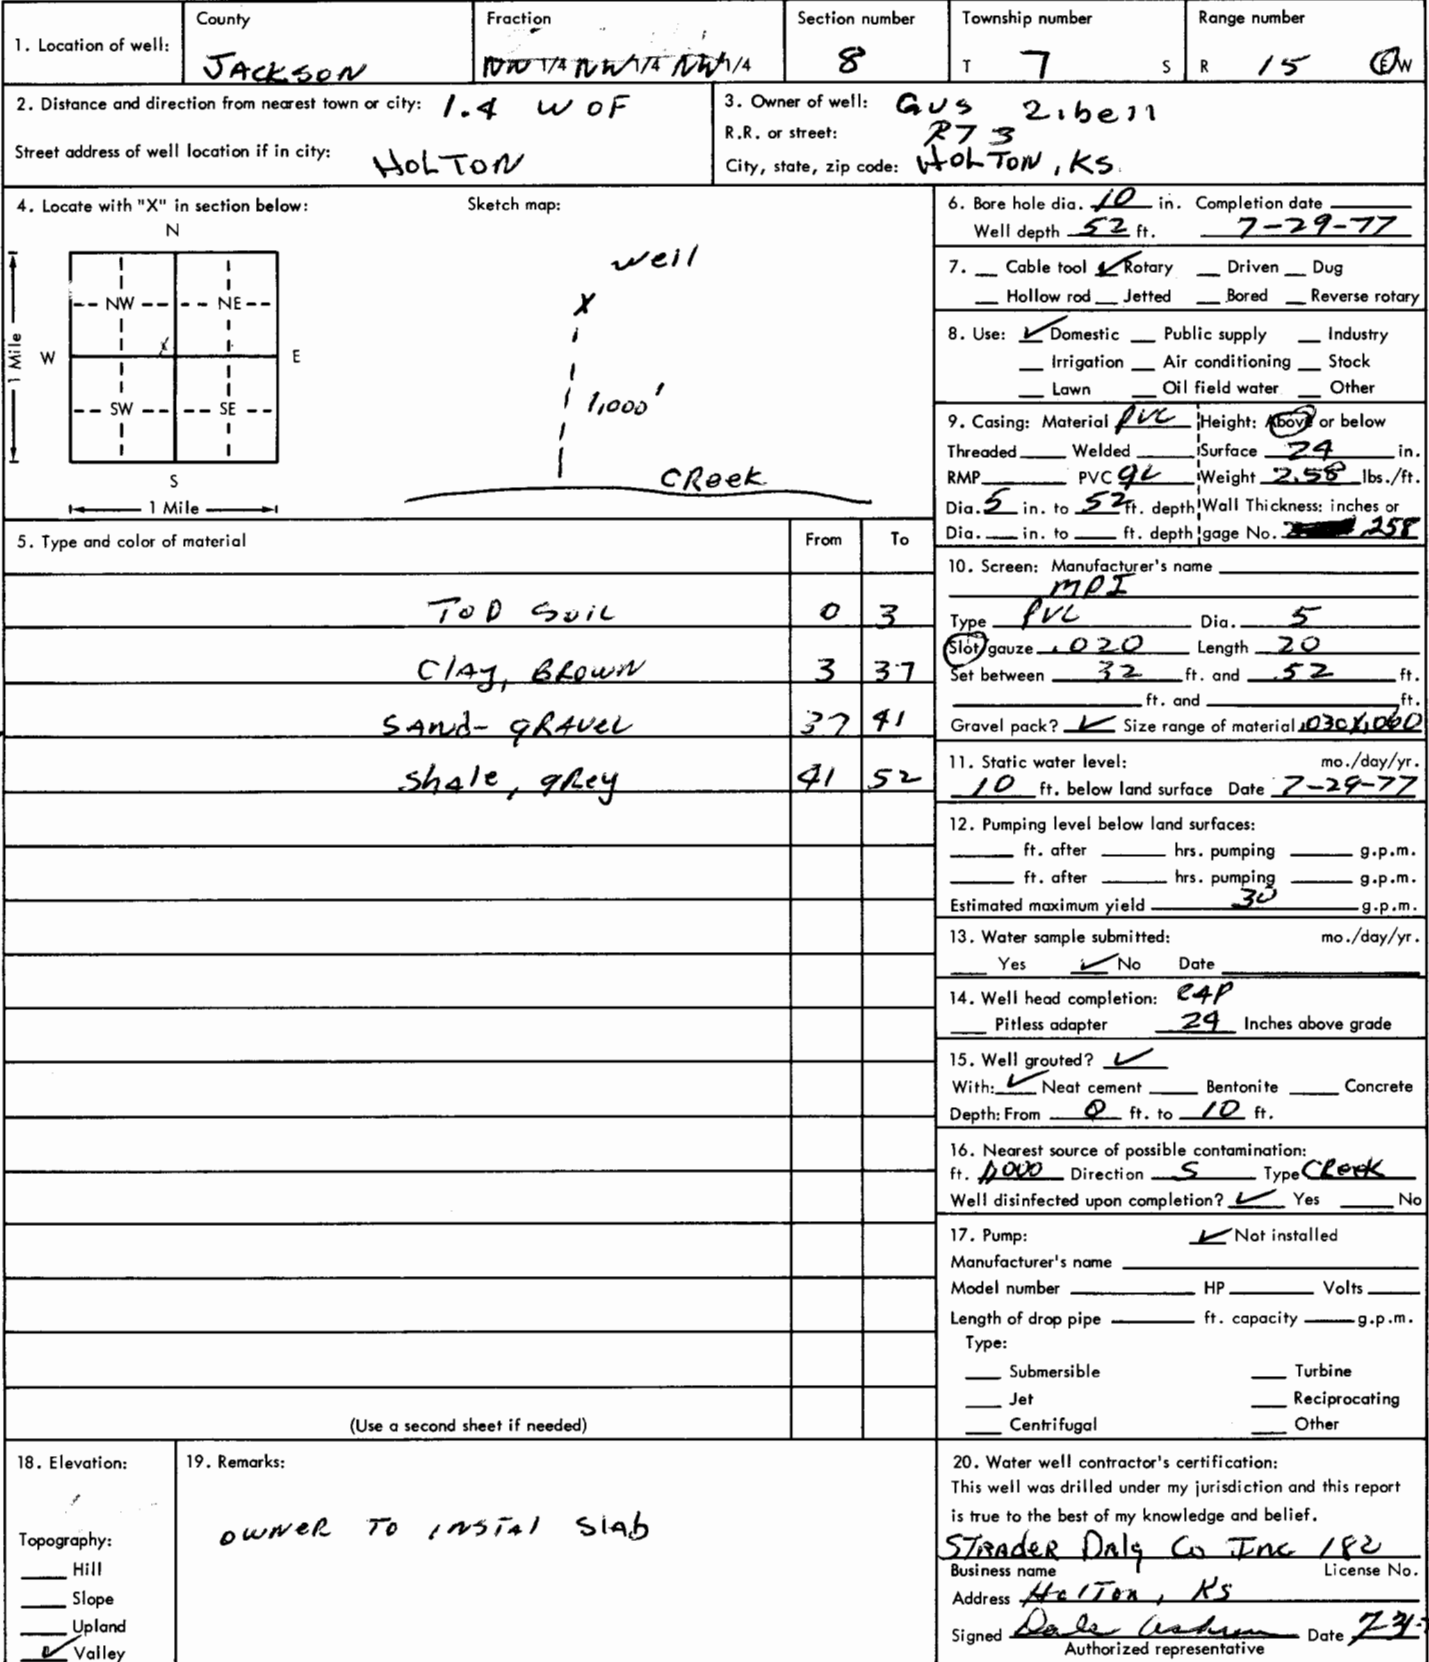 1. Location of well: County JACKSON Fraction 1/4 1/4 1/4 Section number 8 Township number T 7 S Range number R 15 E W
2. Distance and direction from nearest town or city: 1.4 W OF
Street address of well location if in city: HOLTON
3. Owner of well: Gus Zibell
R.R. or street: RT 3
City, state, zip code: HOLTON, KS.
4. Locate with "X" in section below:
N
NW NE
W X E
SW SE
S
1 Mile
1 Mile
Sketch map:
well
X
1,000'
CReek
5. Type and color of material From To
TOP SOIL 0 3
Clay, BROWN 3 37
SAND- gRAVEL 37 41
Shale, gRey 41 52
(Use a second sheet if needed)
6. Bore hole dia. 10 in. Completion date
Well depth 52 ft. 7-29-77
7. Cable tool ✓ Rotary Driven Dug
Hollow rod Jetted Bored Reverse rotary
8. Use: ✓ Domestic Public supply Industry
Irrigation Air conditioning Stock
Lawn Oil field water Other
9. Casing: Material PVC Height: Above or below
Threaded Welded Surface 24 in.
RMP PVC GL Weight 2.58 lbs./ft.
Dia. 5 in. to 52 ft. depth Wall Thickness: inches or
Dia. in. to ft. depth gage No. .258
10. Screen: Manufacturer's name
MPI
Type PVC Dia. 5
Slot/gauze .020 Length 20
Set between 32 ft. and 52 ft.
ft. and ft.
Gravel pack? ✓ Size range of material .030X.060
11. Static water level: mo./day/yr.
10 ft. below land surface Date 7-29-77
12. Pumping level below land surfaces:
ft. after hrs. pumping g.p.m.
ft. after hrs. pumping g.p.m.
Estimated maximum yield 30 g.p.m.
13. Water sample submitted: mo./day/yr.
Yes ✓ No Date
14. Well head completion: CAP
Pitless adapter 24 Inches above grade
15. Well grouted? ✓
With: ✓ Neat cement Bentonite Concrete
Depth: From 0 ft. to 10 ft.
16. Nearest source of possible contamination:
ft. 1,000 Direction S Type CReek
Well disinfected upon completion? ✓ Yes No
17. Pump: ✓ Not installed
Manufacturer's name
Model number HP Volts
Length of drop pipe ft. capacity g.p.m.
Type:
Submersible Turbine
Jet Reciprocating
Centrifugal Other
18. Elevation:
Topography:
Hill
Slope
Upland
✓ Valley
19. Remarks:
OWNER TO INSTAL Slab
20. Water well contractor's certification:
This well was drilled under my jurisdiction and this report
is true to the best of my knowledge and belief.
STRADER Drlg Co Inc 182
Business name License No.
Address HolTon, KS
Signed Dale Date
Authorized representative